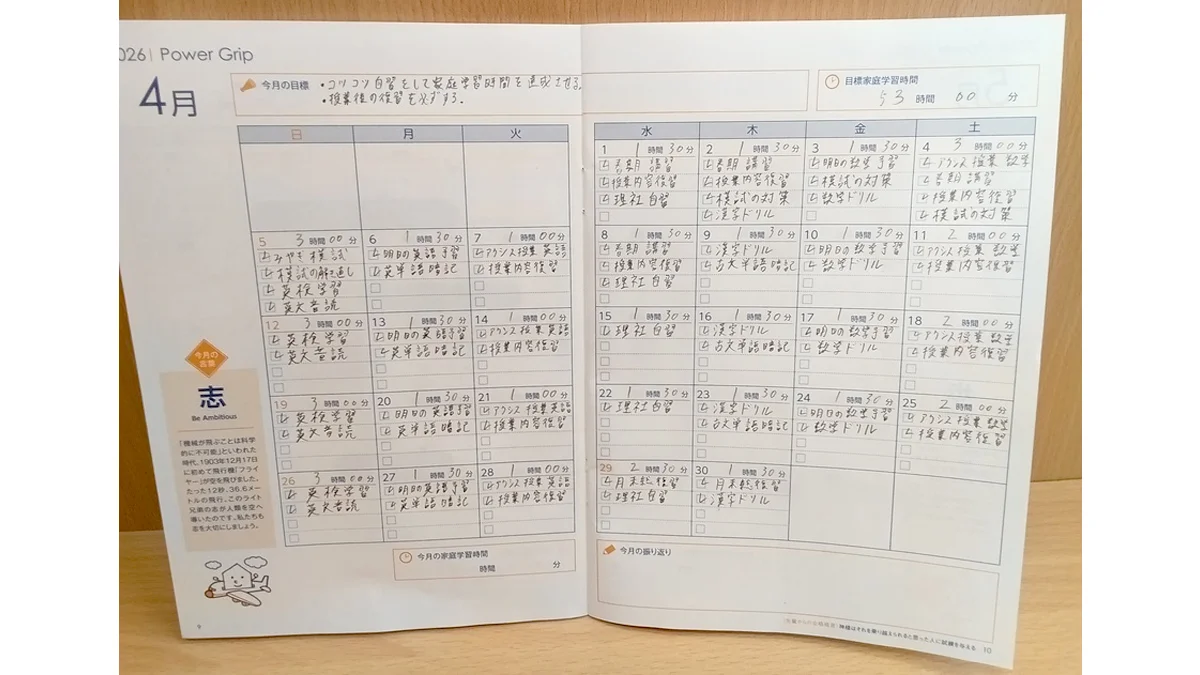 2026 | Power Grip
4月
今月の目標
・コツコツ自習をして家庭学習時間を達成させる。
・授業後の復習を必ずする。
目標家庭学習時間
53 時間 00 分
日 月 火 水 木 金 土
1 1 時間 30 分
春期講習
授業内容復習
理社自習
2 1 時間 30 分
春期講習
授業内容復習
模試の対策
漢字ドリル
3 1 時間 30 分
明日の数学予習
模試の対策
数学ドリル
4 3 時間 00 分
アクシス授業 数学
春期講習
授業内容復習
模試の対策
5 3 時間 00 分
みやぎ模試
模試の解き直し
英検学習
英文音読
6 1 時間 30 分
明日の英語予習
英単語暗記
7 1 時間 00 分
アクシス授業 英語
授業内容復習
8 1 時間 30 分
春期講習
授業内容復習
理社自習
9 1 時間 30 分
漢字ドリル
古文単語暗記
10 1 時間 30 分
明日の数学予習
数学ドリル
11 2 時間 00 分
アクシス授業 数学
授業内容復習
12 3 時間 00 分
英検学習
英文音読
13 1 時間 30 分
明日の英語予習
英単語暗記
14 1 時間 00 分
アクシス授業 英語
授業内容復習
15 1 時間 30 分
理社自習
16 1 時間 30 分
漢字ドリル
古文単語暗記
17 1 時間 30 分
明日の数学予習
数学ドリル
18 2 時間 00 分
アクシス授業 数学
授業内容復習
19 3 時間 00 分
英検学習
英文音読
20 1 時間 30 分
明日の英語予習
英単語暗記
21 1 時間 00 分
アクシス授業 英語
授業内容復習
22 1 時間 30 分
理社自習
23 1 時間 30 分
漢字ドリル
古文単語暗記
24 1 時間 30 分
明日の数学予習
数学ドリル
25 2 時間 00 分
アクシス授業 数学
授業内容復習
26 3 時間 00 分
英検学習
英文音読
27 1 時間 30 分
明日の英語予習
英単語暗記
28 1 時間 00 分
アクシス授業 英語
授業内容復習
29 2 時間 30 分
月末総復習
理社自習
30 1 時間 30 分
月末総復習
漢字ドリル
今月の
言葉
志
Be Ambitious
「機械が飛ぶことは科学
的に不可能」といわれた
時代、1903年12月17日
に初めて飛行機「フライ
ヤー」が空を飛びました。
たった12秒、36.6メー
トルの飛行。このライト
兄弟の志が人類を空へ
導いたのです。私たちも
志を大切にしましょう。
今月の家庭学習時間
時間 分
今月の振り返り
9
神様はそれを乗り越えられると思った人に試練を与える 10